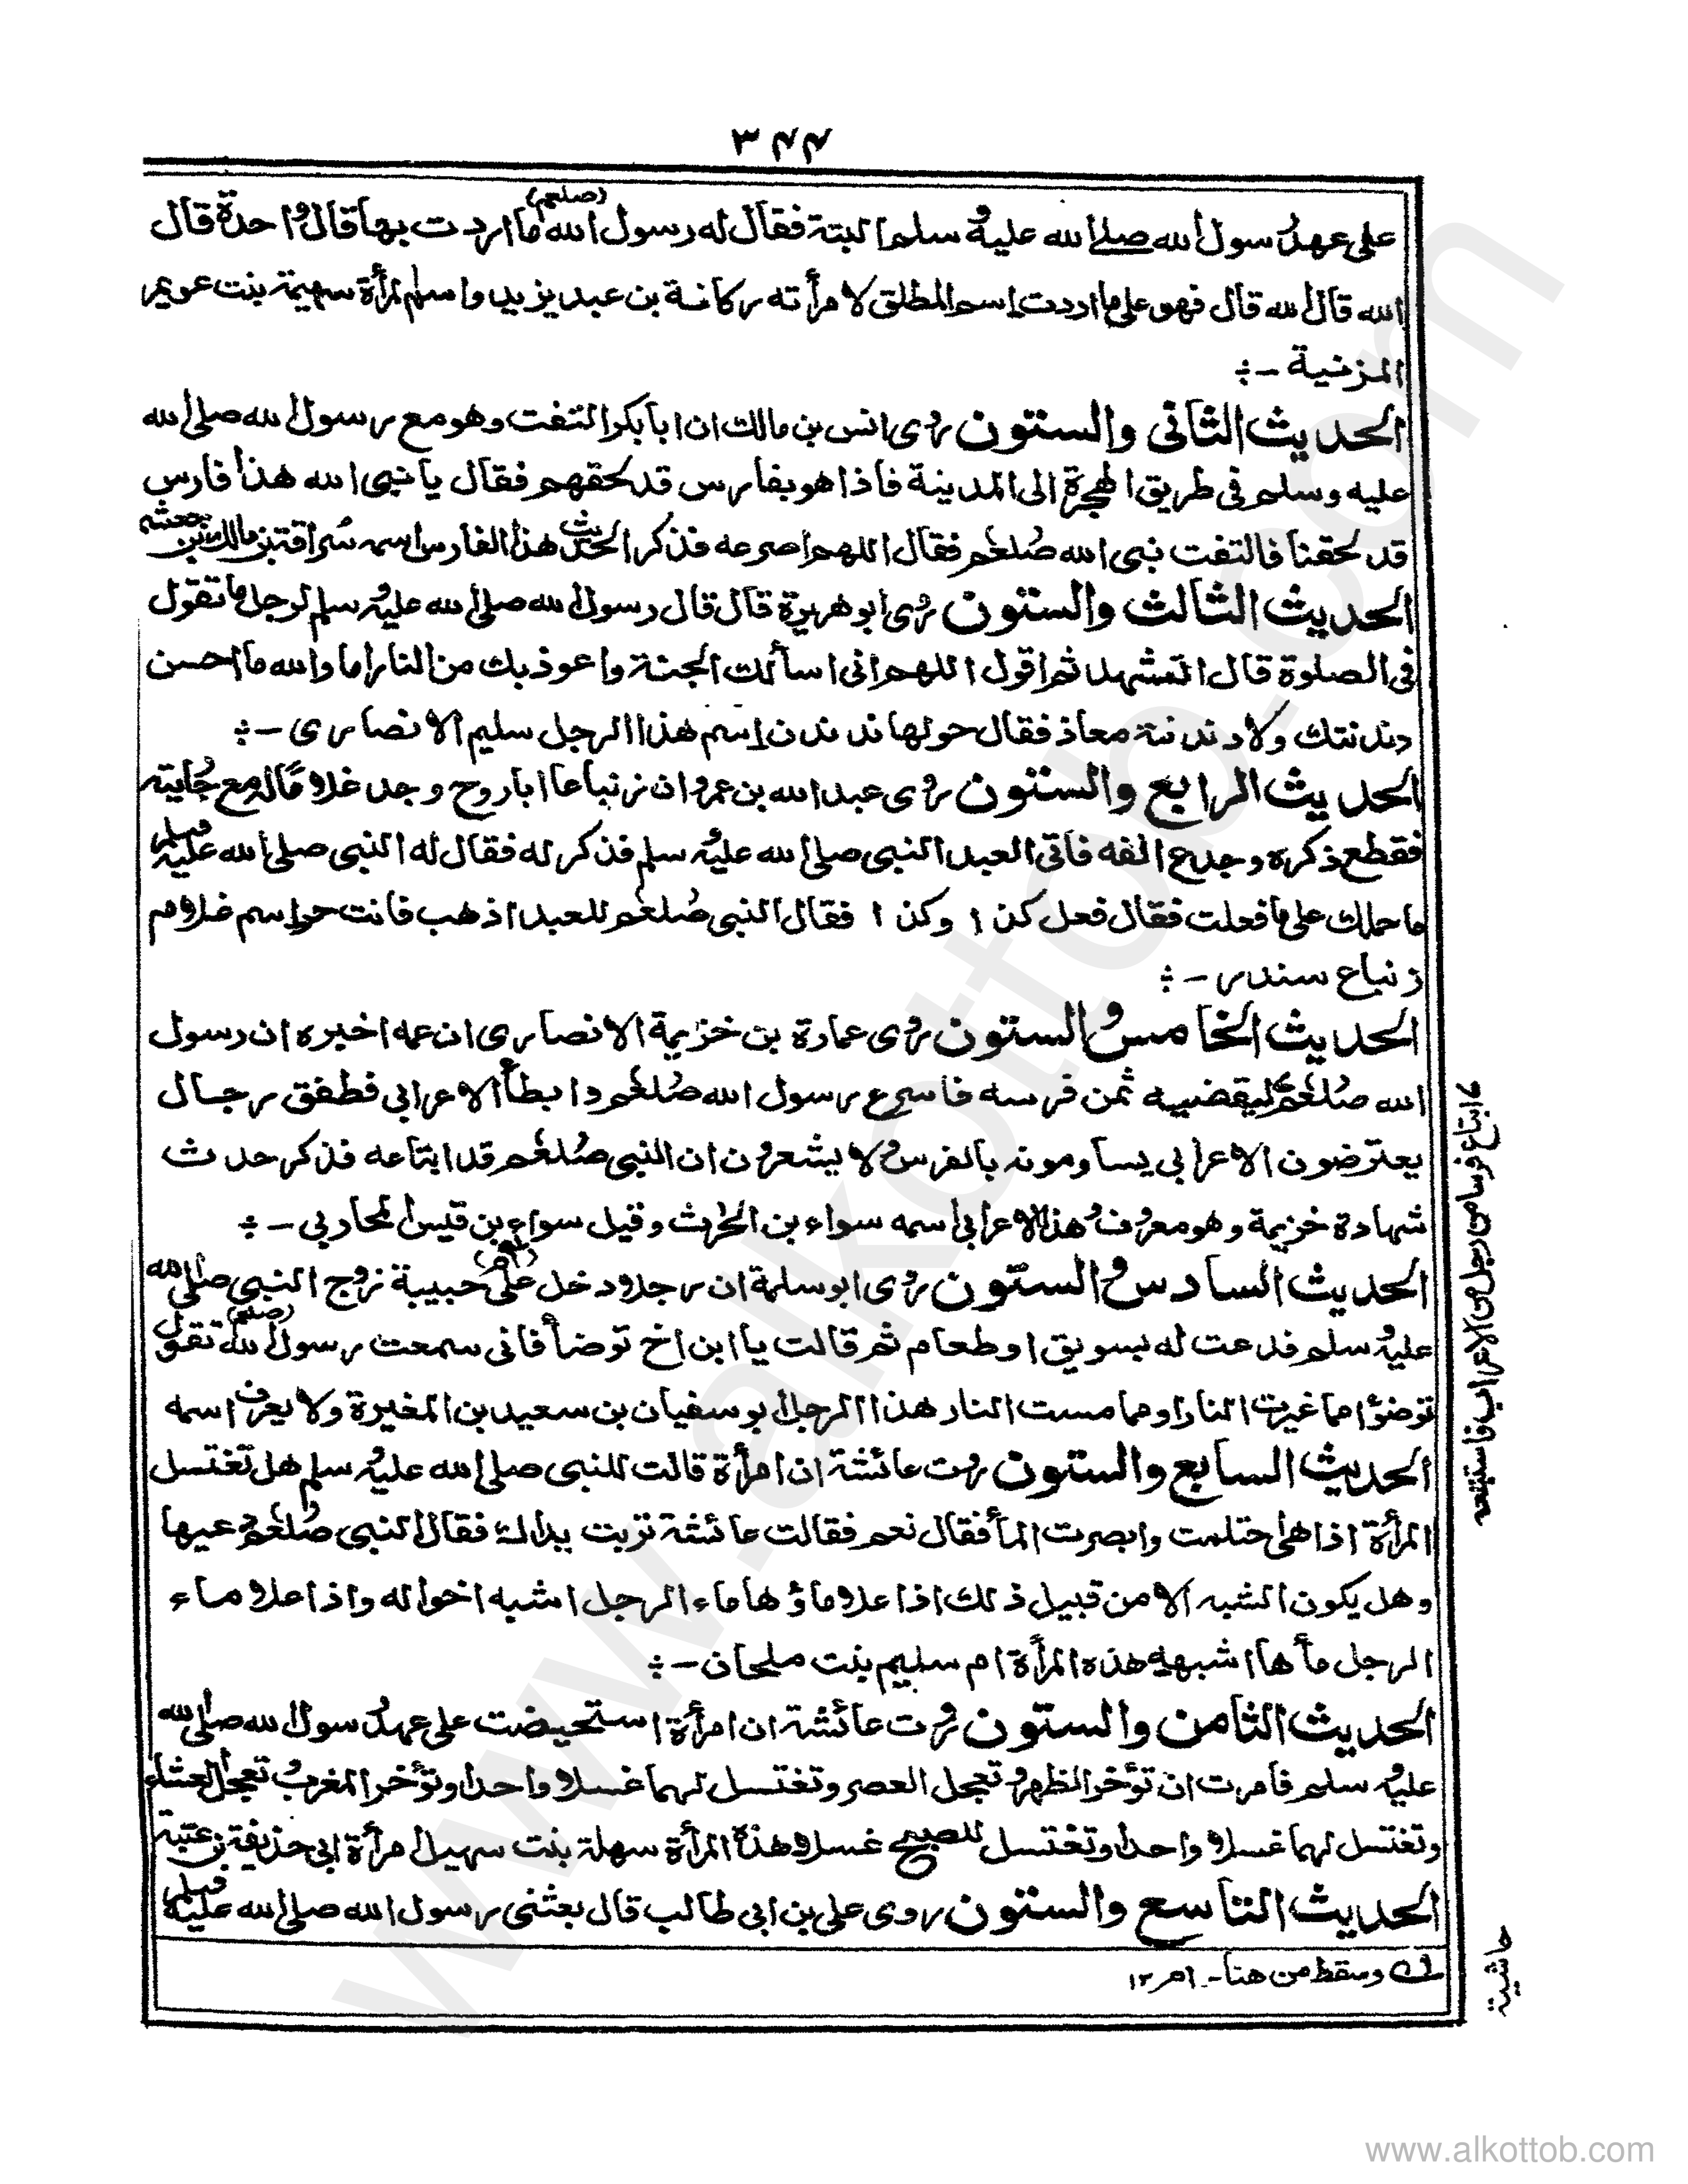 ٣٤٤
على عهد رسول الله صلى الله عليه وسلم البتة فقال له رسول الله (صلعم) ما اردت بها قال واحدة قال
الله قال الله قال فهو على ما اردت اسم المطلق لامرأته ركانة بن عبد يزيد واسم المرأة سهيمة بنت عويمر
المزنية -:
الحديث الثانى والستون روى انس بن مالك ان ابا بكر التفت وهو مع رسول الله صلى الله
عليه وسلم فى طريق الهجرة الى المدينة فاذا هو بفارس قد لحقهم فقال يا نبى الله هذا فارس
قد لحقنا فالتفت نبى الله صلعم فقال اللهم اصرعه فذكر الحديث هذا الفارس اسمه سراقة بن مالك بن جعشم
الحديث الثالث والستون روى ابو هريرة قال قال رسول الله صلى الله عليه وسلم لرجل ما تقول
فى الصلوة قال اتشهد ثم اقول اللهم انى اسألك الجنة واعوذ بك من النار اما والله ما احسن
دندنتك ولا دندنة معاذ فقال حولها ندندن اسم هذا الرجل سليم الانصارى -:
الحديث الرابع والستون روى عبد الله بن عمرو ان زنباعا ابا روح وجد غلاما له مع جاريته
فقطع ذكره وجدع انفه فاتى العبد النبى صلى الله عليه وسلم فذكر له فقال له النبى صلى الله عليه وسلم
ما حملك على ما فعلت فقال فعل كذا وكذا فقال النبى صلعم للعبد اذهب فانت حر اسم غلام
زنباع سندر -:
الحديث الخامس والستون روى عمارة بن خزيمة الانصارى ان عمه اخبره ان رسول
الله صلعم ليقضيه ثمن فرسه فاسرع رسول الله صلعم وابطأ الاعرابي فطفق رجال
يعترضون الاعرابي يساومونه بالفرس ولا يشعرون ان النبى صلعم قد ابتاعه فذكر حديث
شهادة خزيمة وهو معروف وهذا الاعرابي اسمه سواء بن الحارث وقيل سواء بن قيس المحاربي -:
الحديث السادس والستون روى ابو سلمة ان رجلا دخل على (ام) حبيبة زوج النبي صلى الله
عليه وسلم فدعت له بسويق او طعام ثم قالت يا ابن اخ توضأ فانى سمعت رسول الله (صلعم) تقول
توضؤا مما غيرت النار او مما مست النار هذا الرجل ابو سفيان بن سعيد بن المغيرة ولا يعرف اسمه
الحديث السابع والستون روت عائشة ان امرأة قالت للنبى صلى الله عليه وسلم هل تغتسل
المرأة اذا هى احتلمت وابصرت المأ فقال نعم فقالت عائشة تربت يداك فقال النبى صلعم دعيها
وهل يكون الشبه الا من قبيل ذلك اذا علا ماؤها ماء الرجل اشبه اخواله واذا علا ماء
الرجل مأها اشبهه هذه المرأة ام سليم بنت ملحان -:
الحديث الثامن والستون روت عائشة ان امرأة استحيضت على عهد رسول الله صلى الله
عليه وسلم فامرت ان تؤخر الظهر وتعجل العصر وتغتسل لهما غسلا واحدا وتؤخر المغرب وتعجل العشاء
وتغتسل لهما غسلا واحدا وتغتسل للصبح غسلا وهذه المرأة سهلة بنت سهيل امرأة ابى حذيفة بن عتبة
الحديث التاسع والستون روى على بن ابى طالب قال بعثنى رسول الله صلى الله عليه وسلم
وسقط من هنا - ام ١٢
ابتاع فرسا من رجل من الاعراب فاستتبعه
حاشية
www.alkottob.com
www.alkottob.com